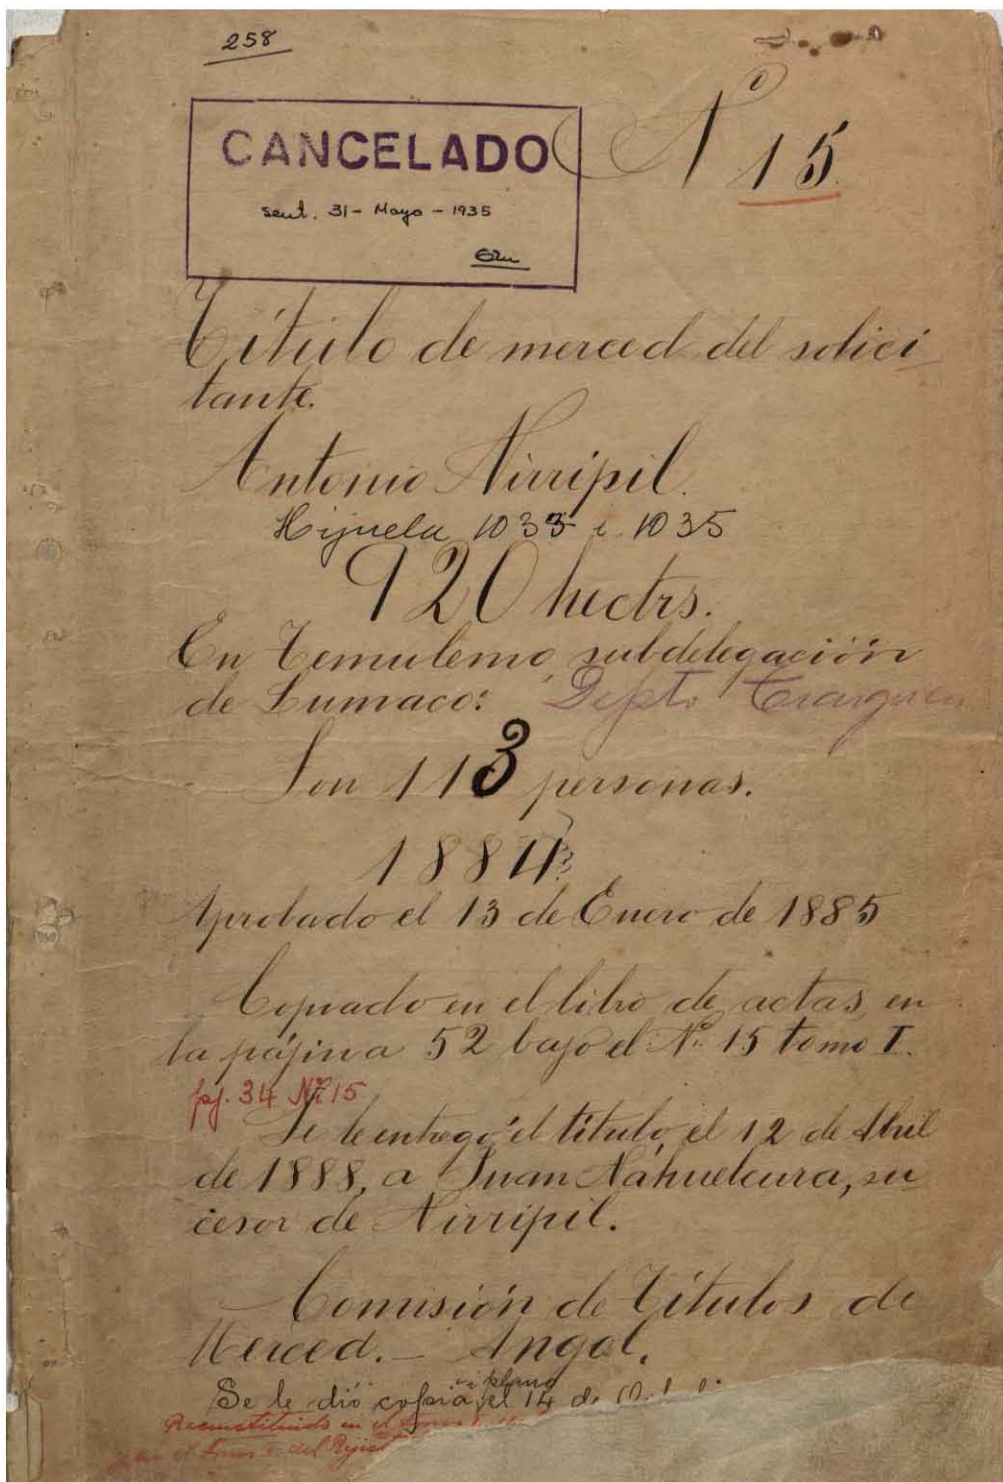 258
Nº 15
CANCELADO
sent. 31 - Mayo - 1935
Título de merced del solici
tante.
Antonio Nirripil.
Hijuela 1033 i 1035
920 hectrs.
En Temulemo, subdelegación
de Lumaco: Depto Traiguen
Son 113 personas.
1884
Aprobado el 13 de Enero de 1885
Copiado en el libro de actas, en
la pájina 52 bajo el Nº 15 tomo I.
pj. 34 Nº 15
Se le entregó el título, el 12 de Abril
de 1888, a Juan Nahuelcura, su
cesor de Nirripil.
Comisión de Títulos de
Merced. - Angol.
i plano
Se le dió copia, el 14 de
Reconstituido en el tomo
el tomo del Rejist